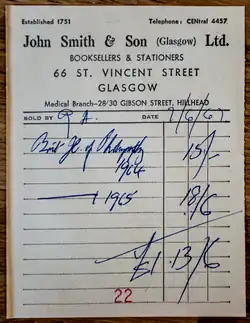 Established 1751 Telephone: CENtral 4457
John Smith & Son (Glasgow) Ltd.
BOOKSELLERS & STATIONERS
66 ST. VINCENT STREET
GLASGOW
Medical Branch-28/30 GIBSON STREET, HILLHEAD
SOLD BY DATE 7/6/67
Brit Jl. of Philosophy
1964 15/-
1965 18/6
£1 13/6
22